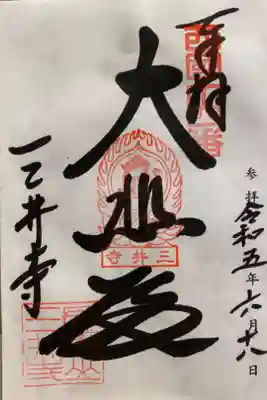 参拝 令和五年六月十八日
奉拝
大悲殿
三井寺
三井寺